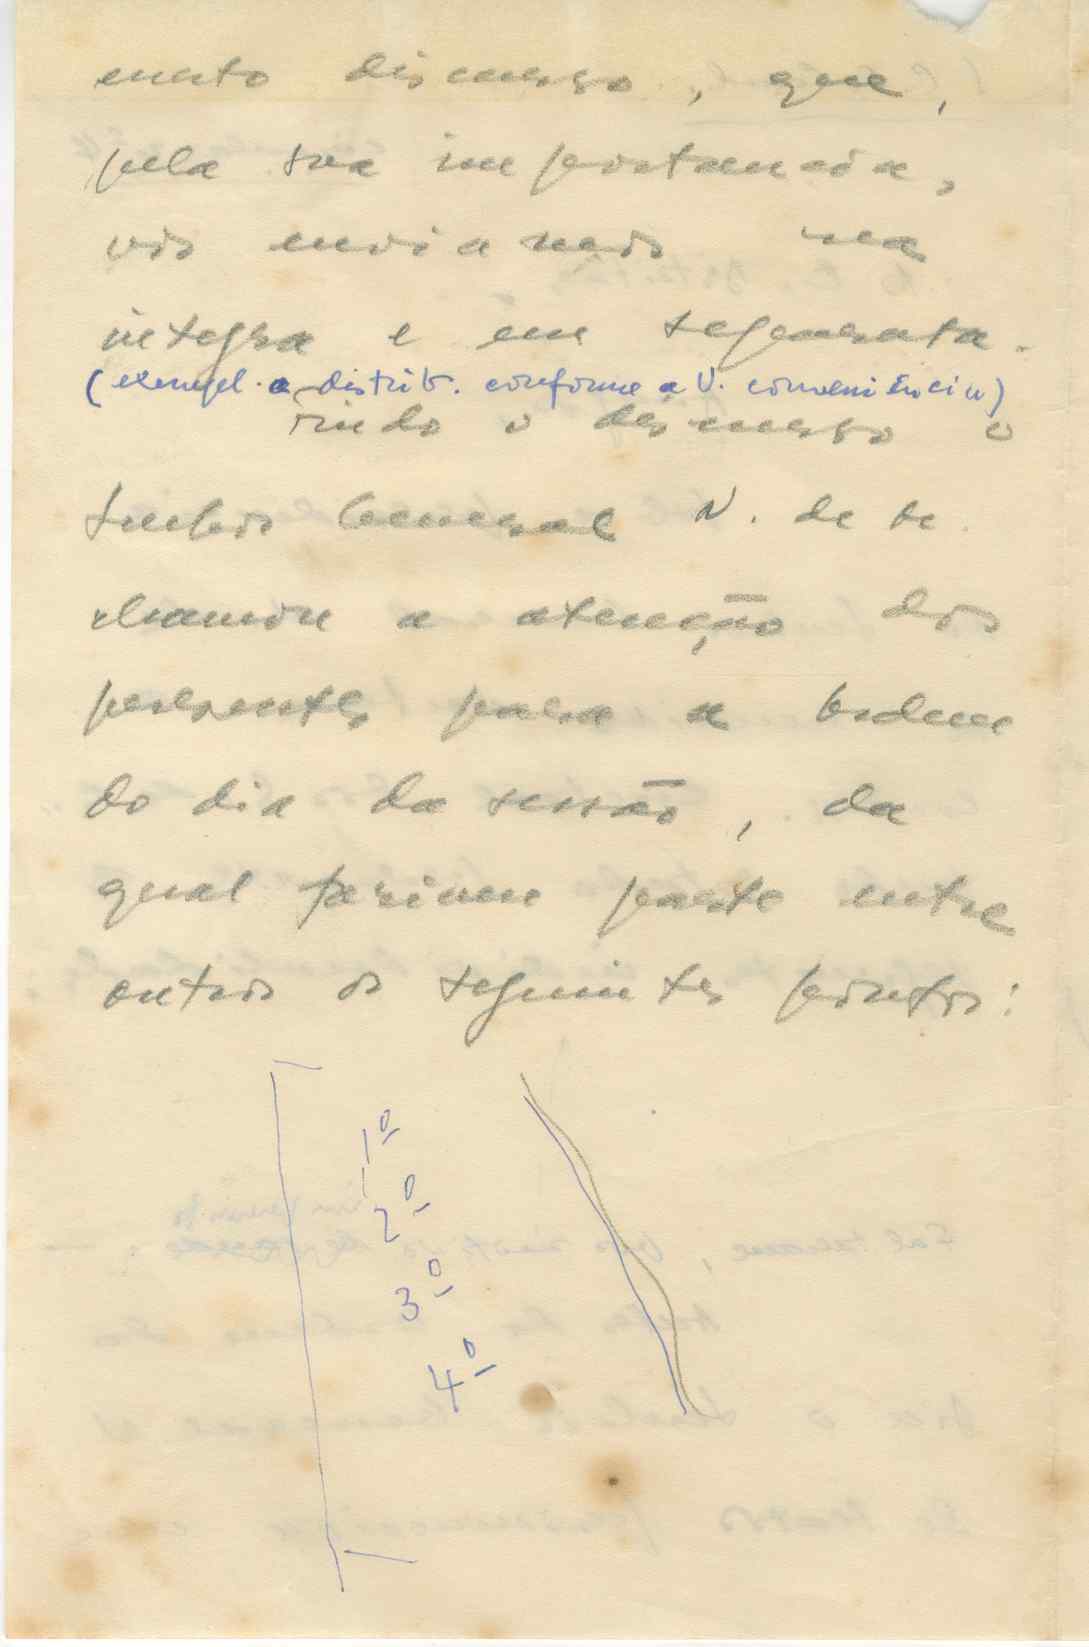 mento discurso, que,
pela sua importancia,
vos enviamos na
integra e em separata.
(exempl. a distrib. conforme a V. conveniência)
Findo o discurso o
General N. de
chamou a atenção dos
presentes para a ordem
do dia da sessão, da
qual faziam parte entre
outros os seguintes pontos:
1º
2º
3º
4º